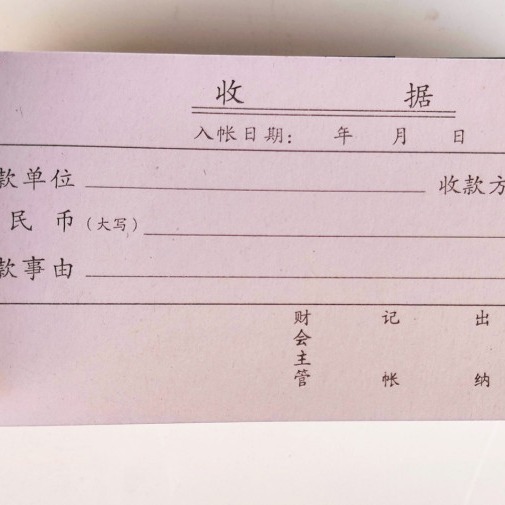 收 据
入帐日期： 年 月 日
款单位 收款方
民 币（大写）
款事由
财会主管 记帐 出纳